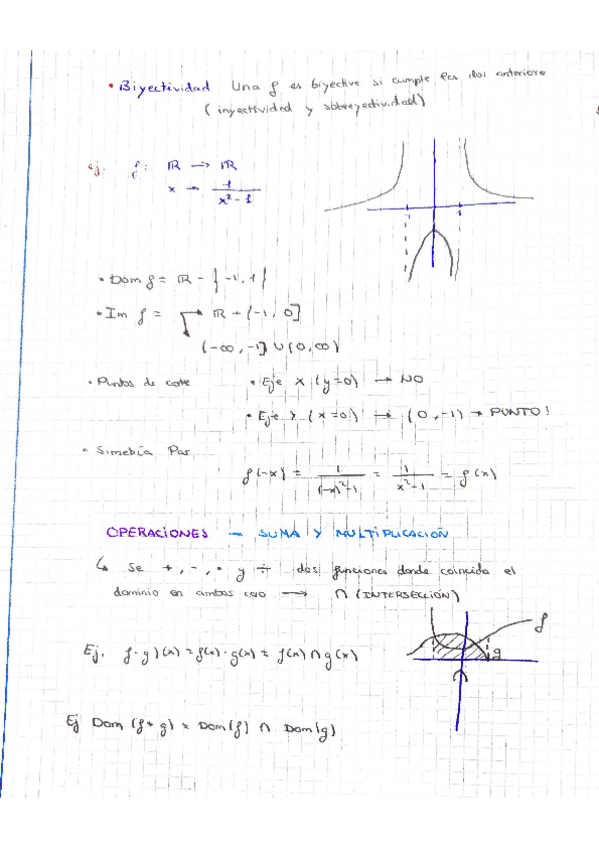 • Biyectividad Una f es biyectiva si cumple las dos anteriores
(inyectividad y sobreyectividad)
ej. f: ℝ → ℝ
x → 1/(x²-1)
• Dom f = ℝ - {-1, 1}
• Im f = ℝ - (-1, 0]
(-∞, -1] ∪ (0, ∞)
• Puntos de corte • Eje X (y=0) → NO
• Eje Y (x=0) → (0, -1) → PUNTO!
• Simetría Par
f(-x) = 1/((-x)²-1) = 1/(x²-1) = f(x)
OPERACIONES → SUMA Y MULTIPLICACIÓN
↳ Se +, -, · y ÷ dos funciones donde coincida el
dominio en ambos caso → ∩ (INTERSECCIÓN)
f
g
Ej. f·g)(x) = f(x)·g(x) = f(x) ∩ g(x)
Ej Dom (f+g) = Dom(f) ∩ Dom(g)